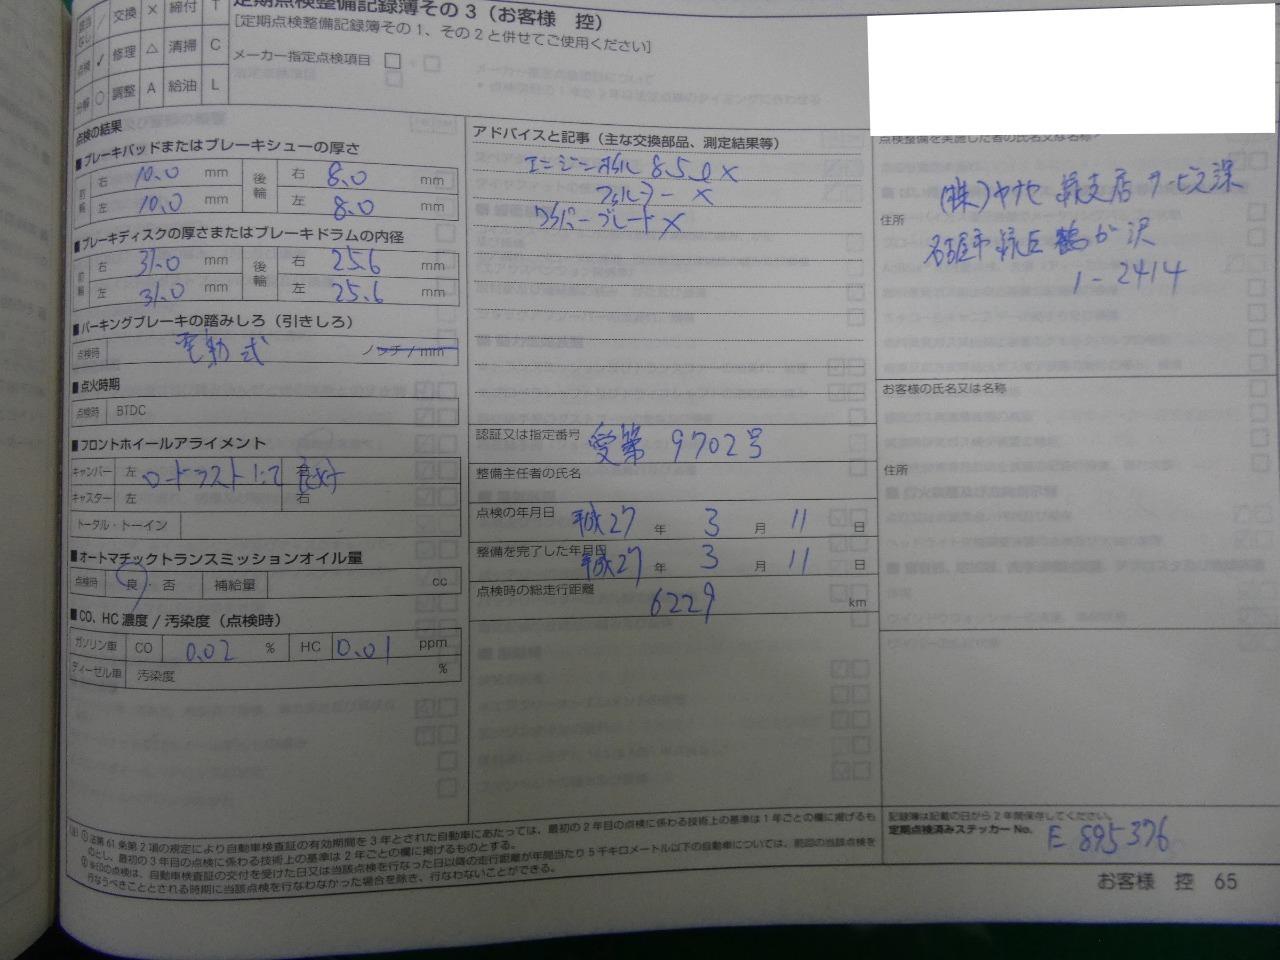 定期点検整備記録簿その３（お客様　控）
［定期点検整備記録簿その１、その２と併せてご使用ください］
交換 × 締付 T
点検 ✓ 修理 △ 清掃 C
分解 ○ 調整 A 給油 L
メーカー指定点検項目 □
点検の結果
■ブレーキパッドまたはブレーキシューの厚さ
前輪 右 10.0 mm 後輪 右 8.0 mm
左 10.0 mm 左 8.0 mm
■ブレーキディスクの厚さまたはブレーキドラムの内径
前輪 右 31.0 mm 後輪 右 25.6 mm
左 31.0 mm 左 25.6 mm
■パーキングブレーキの踏みしろ（引きしろ）
点検時 電動式 ノッチ / mm
■点火時期
点検時 BTDC
■フロントホイールアライメント
キャンバー 左 ロードテストにて 右 良好
キャスター 左 右
トータル・トーイン
■オートマチックトランスミッションオイル量
点検時 良 / 否 補給量 cc
■CO、HC濃度 / 汚染度（点検時）
ガソリン車 CO 0.02 % HC 0.01 ppm
ディーゼル車 汚染度 %
アドバイスと記事（主な交換部品、測定結果等）
エンジンオイル 8.5ℓ ×
フィルター ×
ワイパーブレード ×
認証又は指定番号 愛第 9702号
整備主任者の氏名
点検の年月日 平成27 年 3 月 11 日
整備を完了した年月日 平成27 年 3 月 11 日
点検時の総走行距離 6229 km
点検整備を実施した者の氏名又は名称
(株)ヤナセ 緑支店
住所
名古屋市緑区鶴が沢
1-2414
お客様の氏名又は名称
住所
記録簿は記載の日から２年間保存してください。
定期点検済みステッカー No. E 895376
（注）① 法第 61 条第 2 項の規定により自動車検査証の有効期間を 3 年とされた自動車にあたっては、最初の 2 年目の点検に係わる技術上の基準は 1 年ごとの欄に掲げるも
のとし、最初の 3 年目の点検に係わる技術上の基準は 2 年ごとの欄に掲げるものとする。
② ※印の点検は、自動車検査証の交付を受けた日又は当該点検を行なった日以降の走行距離が年間当たり 5 千キロメートル以下の自動車については、前回の当該点検を
行なうべきこととされる時期に当該点検を行なわなかった場合を除き、行なわないことができる。
お客様　控　65